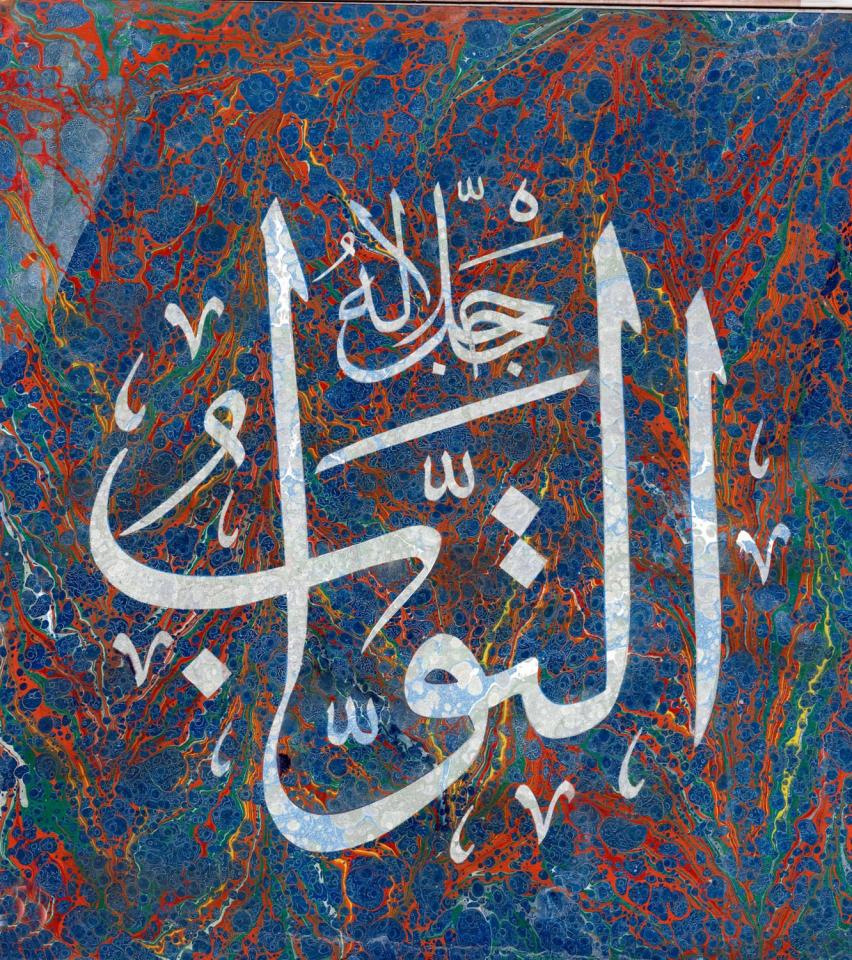 التَّوَّابُ
جَلَّ جَلَالُهُ